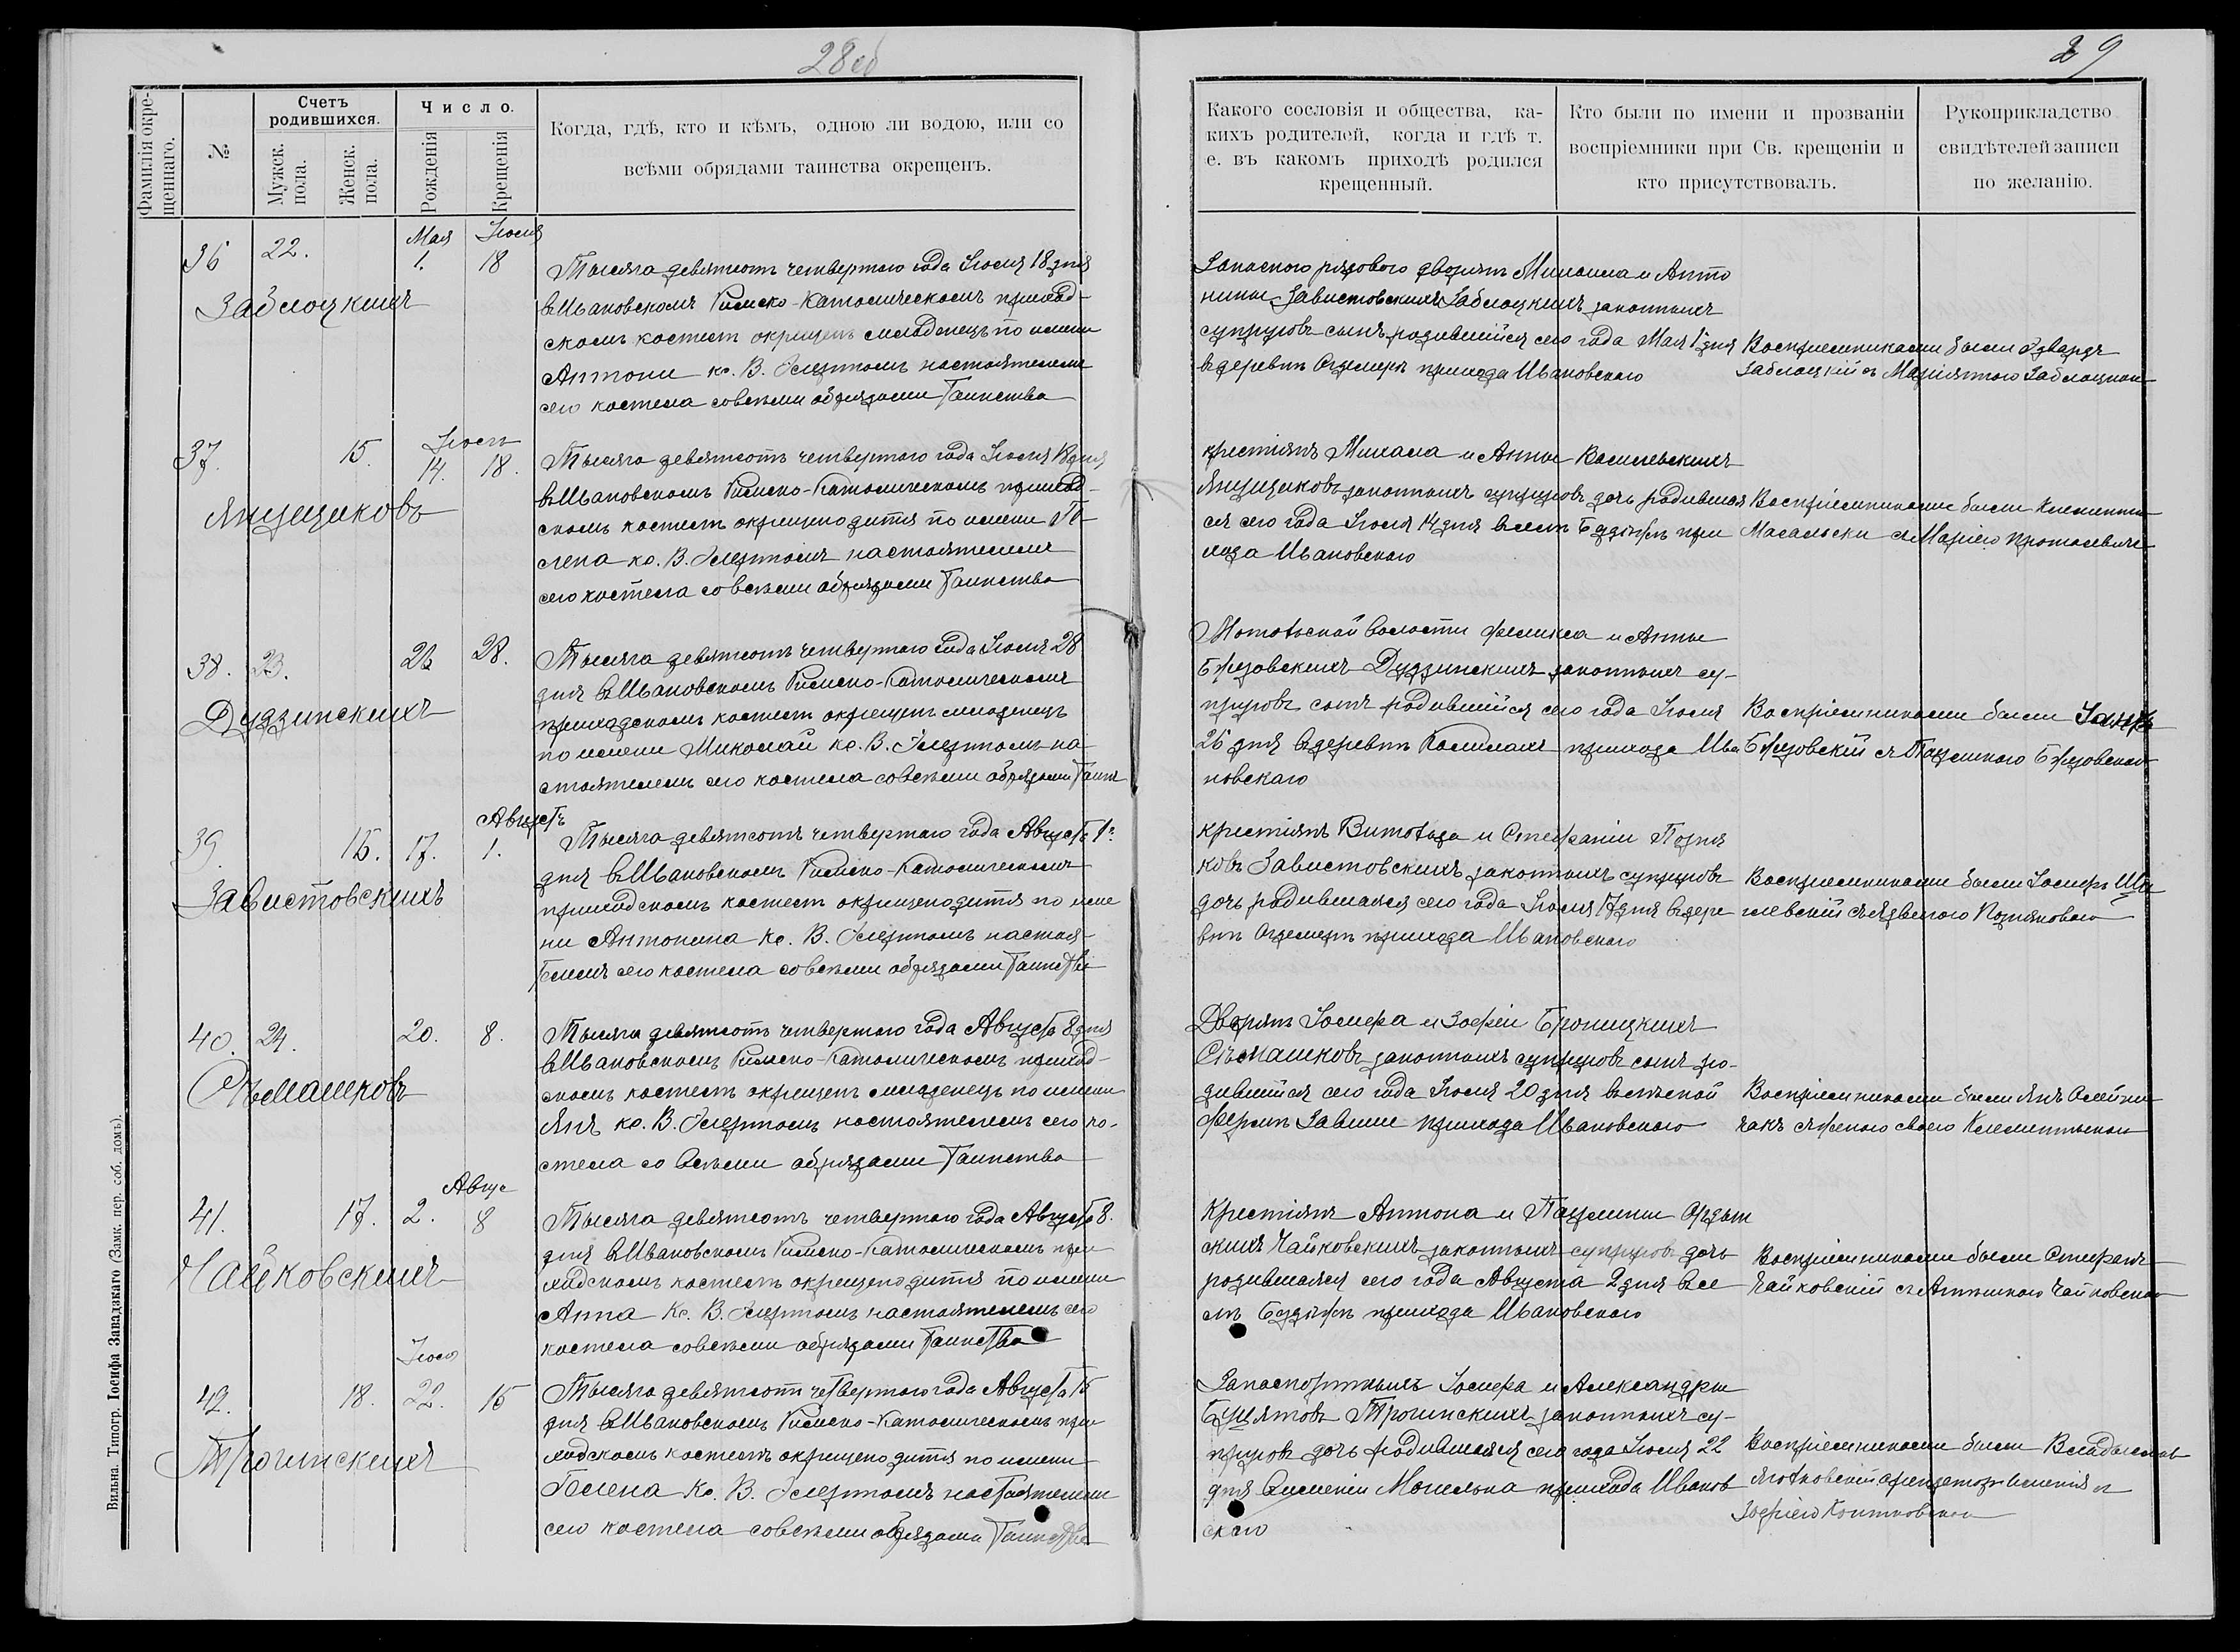 28 об
29
Фамилія окре-
щеннаго.
№
Счетъ
родившихся.
Мужск.
пола.
Женск.
пола.
Число.
Рожденія
Крещенія
Когда, гдѣ, кто и кѣмъ, одною ли водою, или со
всѣми обрядами таинства окрещенъ.
Какого сословія и общества, ка-
кихъ родителей, когда и гдѣ т.
е. въ какомъ приходѣ родился
крещенный.
Кто были по имени и прозваніи
воспріемники при Св. крещеніи и
кто присутствовалъ.
Рукоприкладство
свидѣтелей записи
по желанію.
Мая Іюля
36 22. 1. 18
Заблоцкихъ
Тысяча девятсотъ четвертаго года Іюля 18 дня
въ Ивановскомъ Римско-Католическомъ приход-
скомъ костелѣ окрещенъ младенецъ по имени
Антони кс. В. настоятелемъ
сего костела со всѣми обрядами Таинства
Запасного рядового дворянъ Михаила и Анто
нины Завистовскихъ Заблоцкихъ законныхъ
супруговъ сынъ родившійся сего года Мая 1 дня
въ деревнѣ прихода Ивановскаго
Воспріемниками были Эдвардъ
Заблоцкій съ Маріянною Заблоцкою
Іюль
37. 15. 14. 18.
Янущиковъ
Тысяча девятсотъ четвертаго года Іюля 18 дня
въ Ивановскомъ Римско-Католическомъ приход-
скомъ костелѣ окрещено дитя по имени Ге-
лена кс. В. настоятелемъ
сего костела со всѣми обрядами Таинства
крестіянъ Михала и Анны Василевскихъ
Янущиковъ законныхъ супруговъ дочь родившая
ся сего года Іюля 14 дня въ селѣ при
хода Ивановскаго
Воспріемниками были
съ Маріею
38. 23. 26 28.
Дудзинскихъ
Тысяча девятсотъ четвертаго года Іюля 28
дня въ Ивановскомъ Римско-Католическомъ
приходскомъ костелѣ окрещенъ младенецъ
по имени Миколай кс. В. на-
стоятелемъ сего костела со всѣми обрядами Таин
Мотольской волости Феликса и Анны
Бржозовскихъ Дудзинскихъ законныхъ су-
пруговъ сынъ родившійся сего года Іюля
26 дня въ деревнѣ прихода Ива
новскаго
Воспріемниками были
съ Паулиною
Августъ
39. 16. 17. 1.
Завистовскихъ
Тысяча девятсотъ четвертаго года Августа 1
дня въ Ивановскомъ Римско-Католическомъ
приходскомъ костелѣ окрещено дитя по име
ни Антонина кс. В. настоя-
телемъ сего костела со всѣми обрядами Таинства
крестіянъ Витольда и Стефаніи Позня
ковъ Завистовскихъ законныхъ супруговъ
дочь родившаяся сего года Іюля 17 дня въ дере
внѣ прихода Ивановскаго
Воспріемниками были Іосифъ
съ Ядвигою Позняковою
40. 24. 20. 8.
Сѣмашковъ
Тысяча девятсотъ четвертаго года Августа 8 дня
въ Ивановскомъ Римско-Католическомъ приход-
скомъ костелѣ окрещенъ младенецъ по имени
Янъ кс. В. настоятелемъ сего ко-
стела со всѣми обрядами Таинства
Дворянъ Іосифа и Зофіи Броницкихъ
Сѣмашковъ законныхъ супруговъ сынъ ро-
дившійся сего года Іюля 20 дня въ
прихода Ивановскаго
Воспріемниками были Янъ
съ женою своею
Авгус
41. 17. 2. 8
Чайковскихъ
Тысяча девятсотъ четвертаго года Августа 8.
дня въ Ивановскомъ Римско-Католическомъ при
ходскомъ костелѣ окрещено дитя по имени
Анна Кс. В. настоятелемъ сего
костела со всѣми обрядами Таинства
Крестіянъ Антона и Паулины
скихъ Чайковскихъ законныхъ супруговъ дочь
родившаяся сего года Августа 2 дня въ се
лѣ прихода Ивановскаго
Воспріемниками были Стефанъ
Чайковскій съ Чайковскою
Іюля
42. 18. 22. 15
Трогинскихъ
Тысяча девятсотъ четвертаго года Августа 15
дня въ Ивановскомъ Римско-Католическомъ при
ходскомъ костелѣ окрещено дитя по имени
Гелена Кс. В. настоятелемъ
сего костела со всѣми обрядами Таинства
Іосифа и Александры
Трогинскихъ законныхъ су-
пруговъ дочь родившаяся сего года Іюля 22
дня въ имѣніи прихода Иванов
скаго
Воспріемниками были Владыславъ
арендаторъ имѣнія и
Зофіею
Вильна. Типогр. Іосифа Завадзкаго (Замк. пер. соб. домъ).